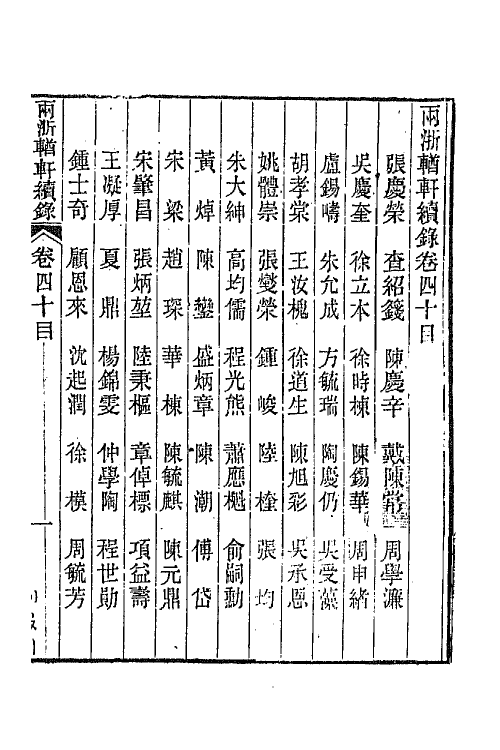 兩浙輶軒續錄卷四十目
張慶榮　查紹籛　陳慶辛　戴陳常　周學濂
吳慶奎　徐立本　徐時棟　陳錫華　周申緒
盧錫疇　朱允成　方毓瑞　陶慶仍　吳受藻
胡孝棠　王汝槐　徐道生　陳旭彩　吳承恩
姚體崇　張燮榮　鍾峻　陸楏　張均
朱大紳　高均儒　程光熊　蕭應櫆　俞嗣勳
黃焯　陳鑾　盛炳章　陳潮　傅岱
宋梁　趙琛　華棟　陳毓麒　陳元鼎
宋肇昌　張炳堃　陸秉樞　章倬標　項益壽
王凝厚　夏鼎　楊錦雯　仲學陶　程世勛
鍾士奇　顧恩來　沈起潤　徐模　周毓芳
兩浙輶軒續錄　卷四十目　一